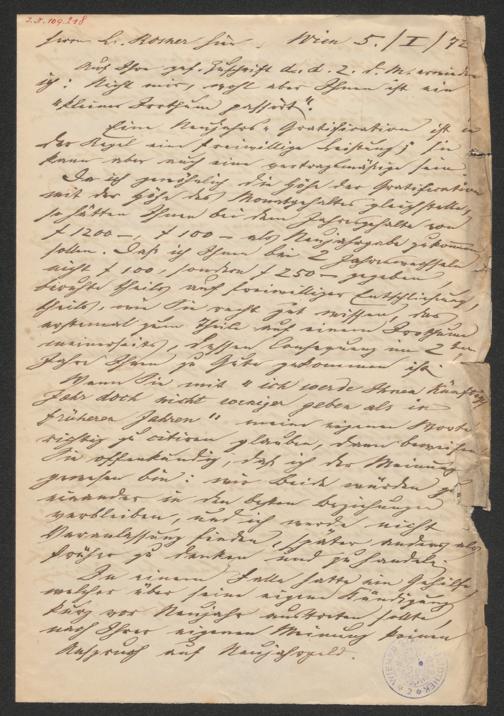 I.N. 109.218
Herrn L. Rosner hier. Wien 5./I/72
Auf Ihre gef. Zuschrift de. d. 2. d. M. erwiedere
ich: Nicht mir, wohl aber Ihnen ist ein
"kleiner Irrthum passirt".
Eine Neujahrs-Gratification ist in
der Regel eine freiwillige Leistung; sie
kann aber auch eine vertragsmäßige sein.
Da ich gewöhnlich die Höhe der Gratification
mit der Höhe des Monatgehaltes gleichstelle,
so hätten Ihnen bei dem Jahresgehalte von
f 1200 —, f 100 — als Neujahrsgabe zukommen
sollen. Daß ich Ihnen bei 2 Jahreswechseln
nicht f 100, sondern f 250 — gegeben,
beruhte theils auf freiwilliger Entschließung,
theils, wie Sie recht gut wissen, das
erstemal zum Theile auf einem Irrthume
meinerseits, dessen Consequenz im 2ten
Jahre Ihnen zu Gute gekommen ist.
Wenn Sie mit "ich werde Ihnen künftiges
Jahr doch nicht weniger geben als in
früheren Jahren" meine eigenen Worte
richtig zu citiren glauben, dann beweisen
Sie offenkundig, daß ich der Meinung
gewesen bin: wir beide würden zu
einander in den besten Beziehungen
verbleiben, und ich werde nicht
Veranlassung finden, später anders als
früher zu denken und zu handeln.
In einem Falle hatte ein Gehilfe,
welcher über seine eigene Kündigung
kurz vor Neujahr austreten sollte,
nach Ihrer eigenen Meinung keinen
Anspruch auf Neujahrsgeld.